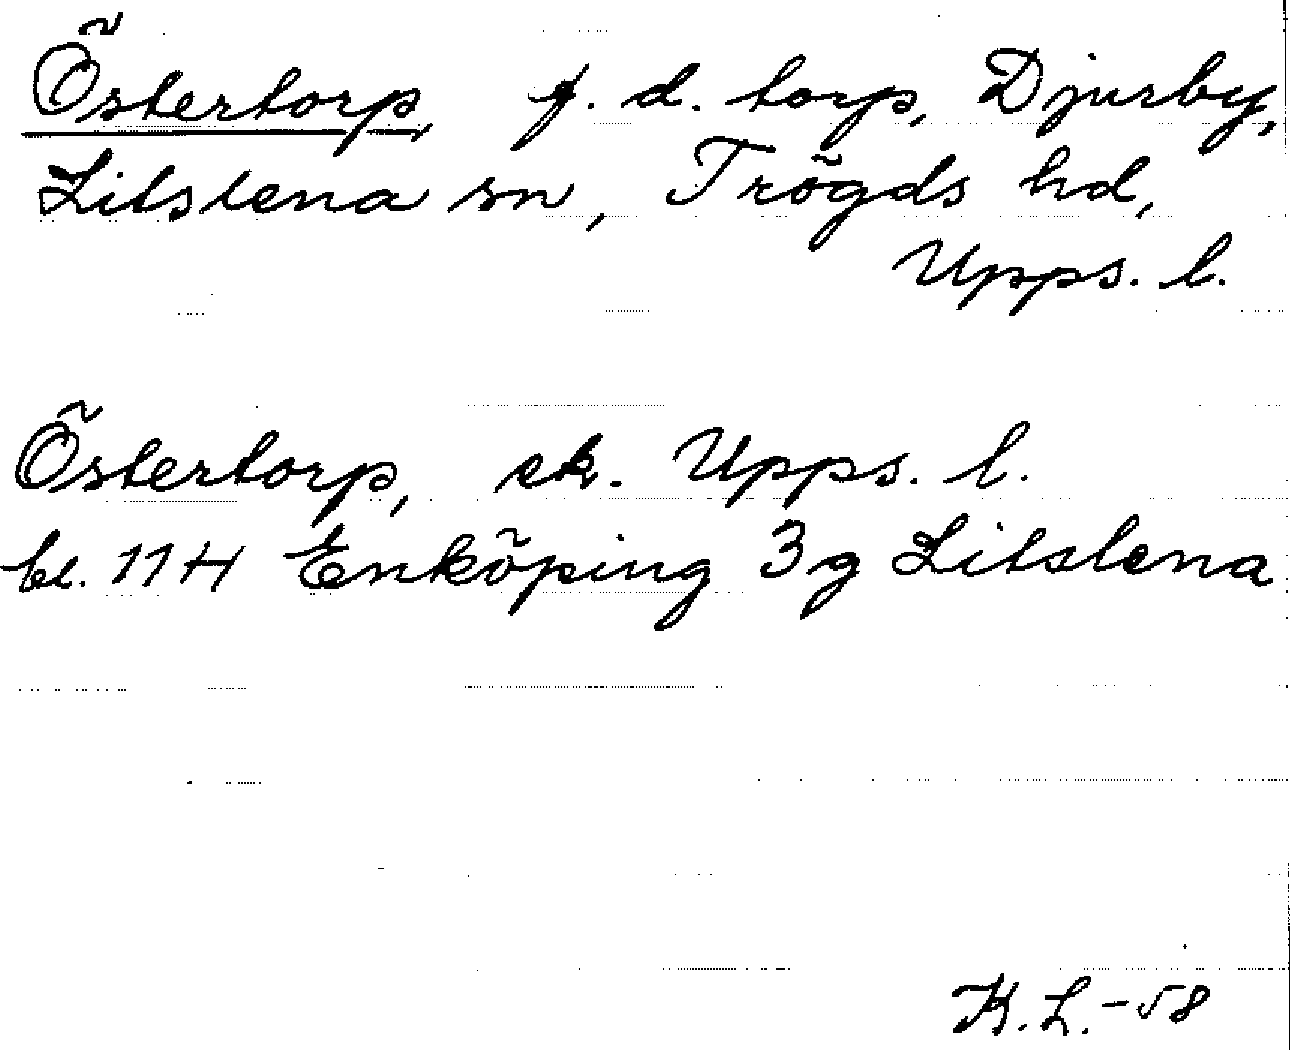 Östertorp, f. d. torp, Djurby,
Litslena sn, Trögds hd,
Upps. l.
Östertorp, ek. Upps. l.
bl. 114 Enköping 3g Litslena
K. L. -58